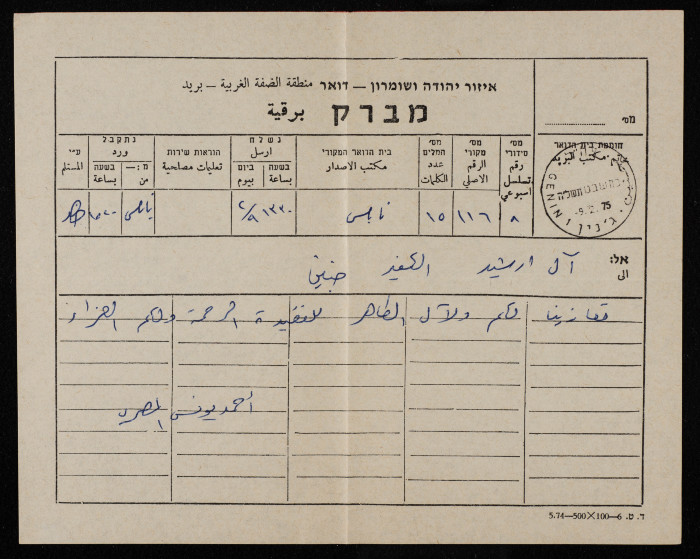 איזור יהודה ושומרון – דואר منطقة الضفة الغربية – بريد
מברק برقية
מס׳
חותמת בית הדואר
مكتب البريد
GENIN
-9. 2. 75
ג׳נין
מס׳ סידורי رقم تسلسل اسبوعي
מס׳ מקורי الرقم الاصلي
מס׳ המלים عدد الكلمات
בית הדואר המקורי مكتب الاصدار
נשלח ارسل
בשעה بساعة
ביום بيوم
הוראות שירות تعليمات مصلحية
נתקבל ورد
בשעה بساعة
מ:— من
ע״י المستلم
٨ ١١٦ ١٥ نابلس ١٣٣٠ ٩/٢ نابلس
אל: آل ارشيد الكفير جنين
الى
تعازينا لكم ولآل الطاهر للفقيدة الرحمة ولكم العزاء
أحمد يونس المصري
ד. ט. 6—100×500—5.74